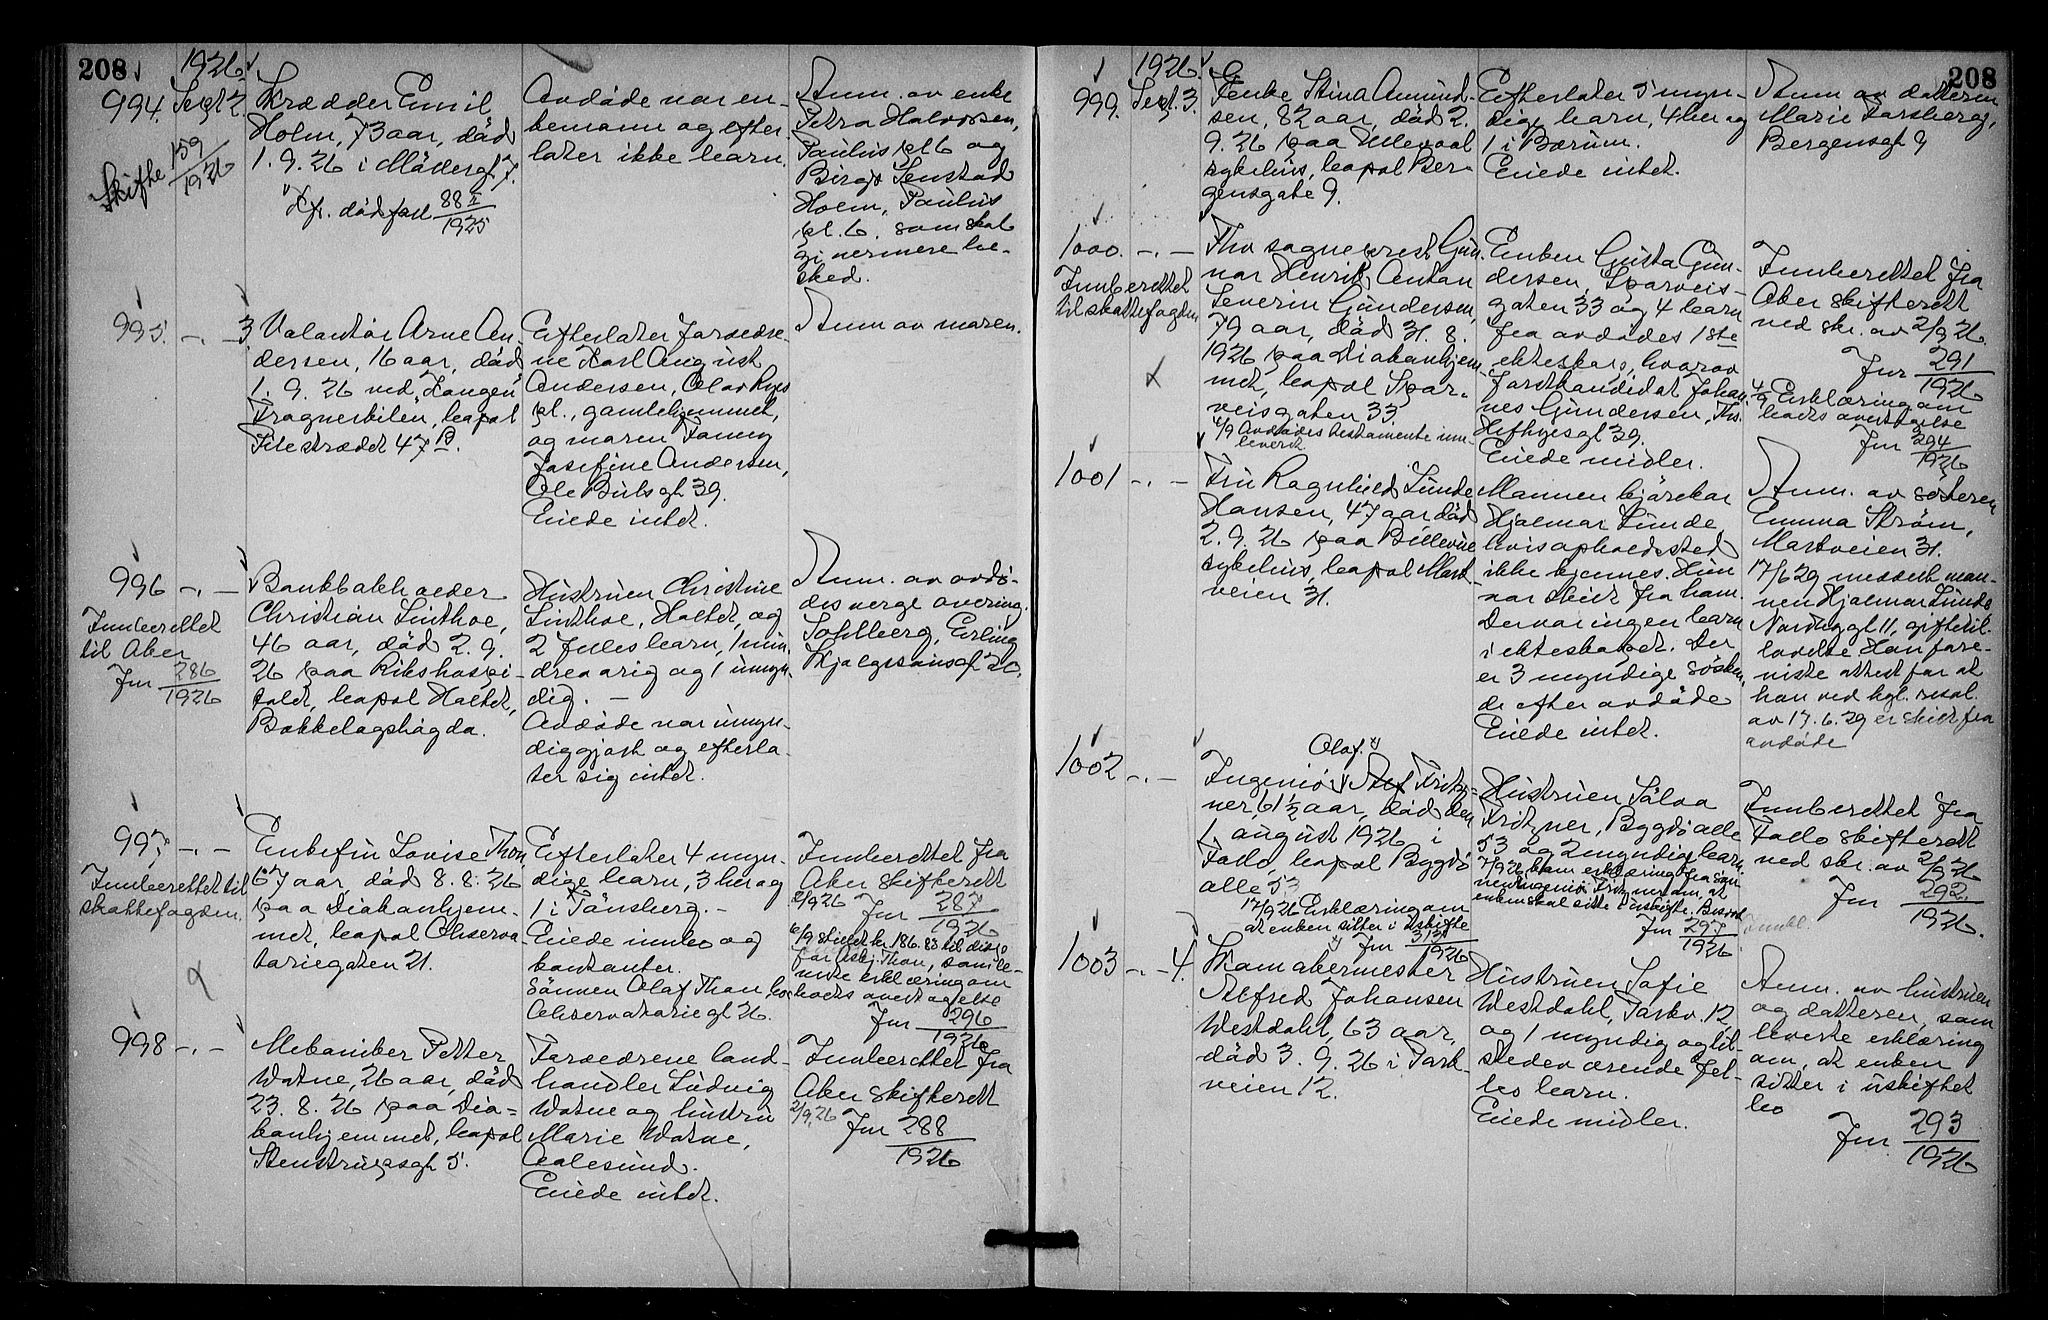 208
1926
994. Sept 2.
Skifte 159
1926
Skrædder Emil
Holm, 73 aar, död
1. 9. 26 i Mödergt 7.
Jfr. dödsfall 88 I
1925
Avdöde var en-
kemann og efter-
later ikke barn.
Anm. av enke
Petra Halvorsen,
Paulus pl. 6 og
Holm, Paulus
pl. 6. som skal
gi nærmere be-
sked.
995. -.- 3
Valantör Arne An-
dersen, 16 aar, död
1. 9. 26 ved "Kongen"
Frognerkilen, bopal
Pilestrædet 47 B.
Efterlater foreldre-
ne Karl August
Andersen, Olav Ryes
pl., gamlehjemmet,
og moren Fanny
Josefine Andersen,
Ole Bulsgt 39.
Eiede intet.
Anm av moren.
996 -.-
Innberettet
til Aker
Jnr 286
1926
Bankbokholder
Christian Linthoe,
46 aar, död 2. 9.
26 paa Rikshospi-
talet, bopal Holtet,
Bækkelagshögda.
Hustruen Christine
Linthoe, Holtet, og
2 fulles barn, 1 min-
dreaarig og 1 umyn-
dig. -
Avdöde var umyn-
diggjort og efterla-
ter sig intet.
Anm. av avdö-
des verge overing.
Sahlberg, Erling
Skjalgssönsgt 20.
997 -.-
Innberettet til
skattefogden
Enkefru Lovise Thon,
67 aar, död 8. 8. 26
paa Diakonhjem-
met, bopal Observa-
toriegaten 21.
Efterlater 4 myn-
dige barn, 3 her og
1 i Tönsberg. -
Eiede innbo og
kontanter.
Sönnen Olaf Thon bor
Observatoriegt 26.
Innberettet fra
Aker skifterett
2/9 26 Jnr 287
1926
6/9 stillet kr. 186.83 til disp.
for Asbj. Thon, som le-
verte erklæring om
boets overtagelse
Jnr 296
1926
998 -.-
Mekaniker Petter
Watne, 26 aar, död
23. 8. 26 paa Dia-
konhjemmet, bopal
Stenstrupsgt 5.
Forældrene land-
handler Ludvig
Watne og hustru
Marie Watne,
Aalesund.
Eiede intet.
Innberettet fra
Aker skifterett
2/9. 26
Jnr 288
1926
208
1926
999. Sept. 3.
Enke Stina Amund-
sen, 82 aar, död 2.
9. 26 paa Ullevaal
sykehus, bopal Ber-
gensgate 9.
Efterlater 5 myn-
dige barn, 4 her og
1 i Bærum.
Eiede intet.
Anm av datteren
Marie Forsberg,
Bergensgt 9
1000. -.-
Innberettet
til skattefogden
Fhv sogneprest Gun-
nar Henrik Anton
Severin Gundersen,
79 aar, död 31. 8.
1926 paa Diakonhjem-
met, bopal Spor-
veisgaten 33
4/9 Avdödes testamente inn-
levert
Enken Gusta Gun-
dersen, Sporveis-
gaten 33 og 4 barn
fra avdödes 1ste
ekteskap, hvorav
forstkandidat Johan-
nes Gundersen, Ths.
Heftyesgt 39.
Eiede midler.
Innberettet fra
Aker skifterett
ved skr. av 2/9 26.
Jnr 291
1926
4/9 Erklæring om
boets overtagelse
Jnr 294
1926
1001 -.-
Fru Ragnhild Lunde
Hansen, 47 aar död
2. 9. 26 paa Bellevue
sykehus, bopal Mark-
veien 31.
Mannen kjörekar
Hjalmar Lunde,
hvis opholdssted
ikke kjennes. Hun
var skilt fra ham.
Der var ingen barn
i ekteskapet. Der
er 3 myndige sösken-
de efter avdöde
Eiede intet.
Anm. av söstren
Emma Ström,
Markveien 31.
17/6 29 meddelt man-
nen Hjalmar Lunde
Nordbygt 11, giftetil-
ladelse. Han fore-
viste attest for at
han ved kgl. resol.
av 17. 6. 29 er skilt fra
avdöde
1002 -.-
Olaf.
Ingeniör Alf Fritz-
ner, 61 1/2 aar, död den
1 august 1926 i
Follo, bopal Bygdö
alle 53
17/9 26 Erklæring om
at enken sitter i uskifte
Jnr 313
1926
Hustruen Sölva
Fritzner, Bygdö alle
53 og 2 myndige barn.
7/9 26 kom erklæring fra søn-
nen ingeniör Fritzner om, at
enken skal sitte i uskifte.
Jnr 297
1926
Innberettet fra
Follo skifterett
ved skr. av 2/9 26
Jnr 292
1926.
1003 -.- 4.
Skomakermester
Alfred Johansen
Westdahl, 63 aar,
död 3. 9. 26 i Park-
veien 12.
Hustruen Sofie
Westdahl, Parkv. 12,
og 1 myndig og til-
stedeværende fel-
les barn.
Eiede midler.
Anm. av hustruen
og datteren, som
leverte erklæring
om, at enken
sitter i uskiftet
bo
Jnr. 293
1926